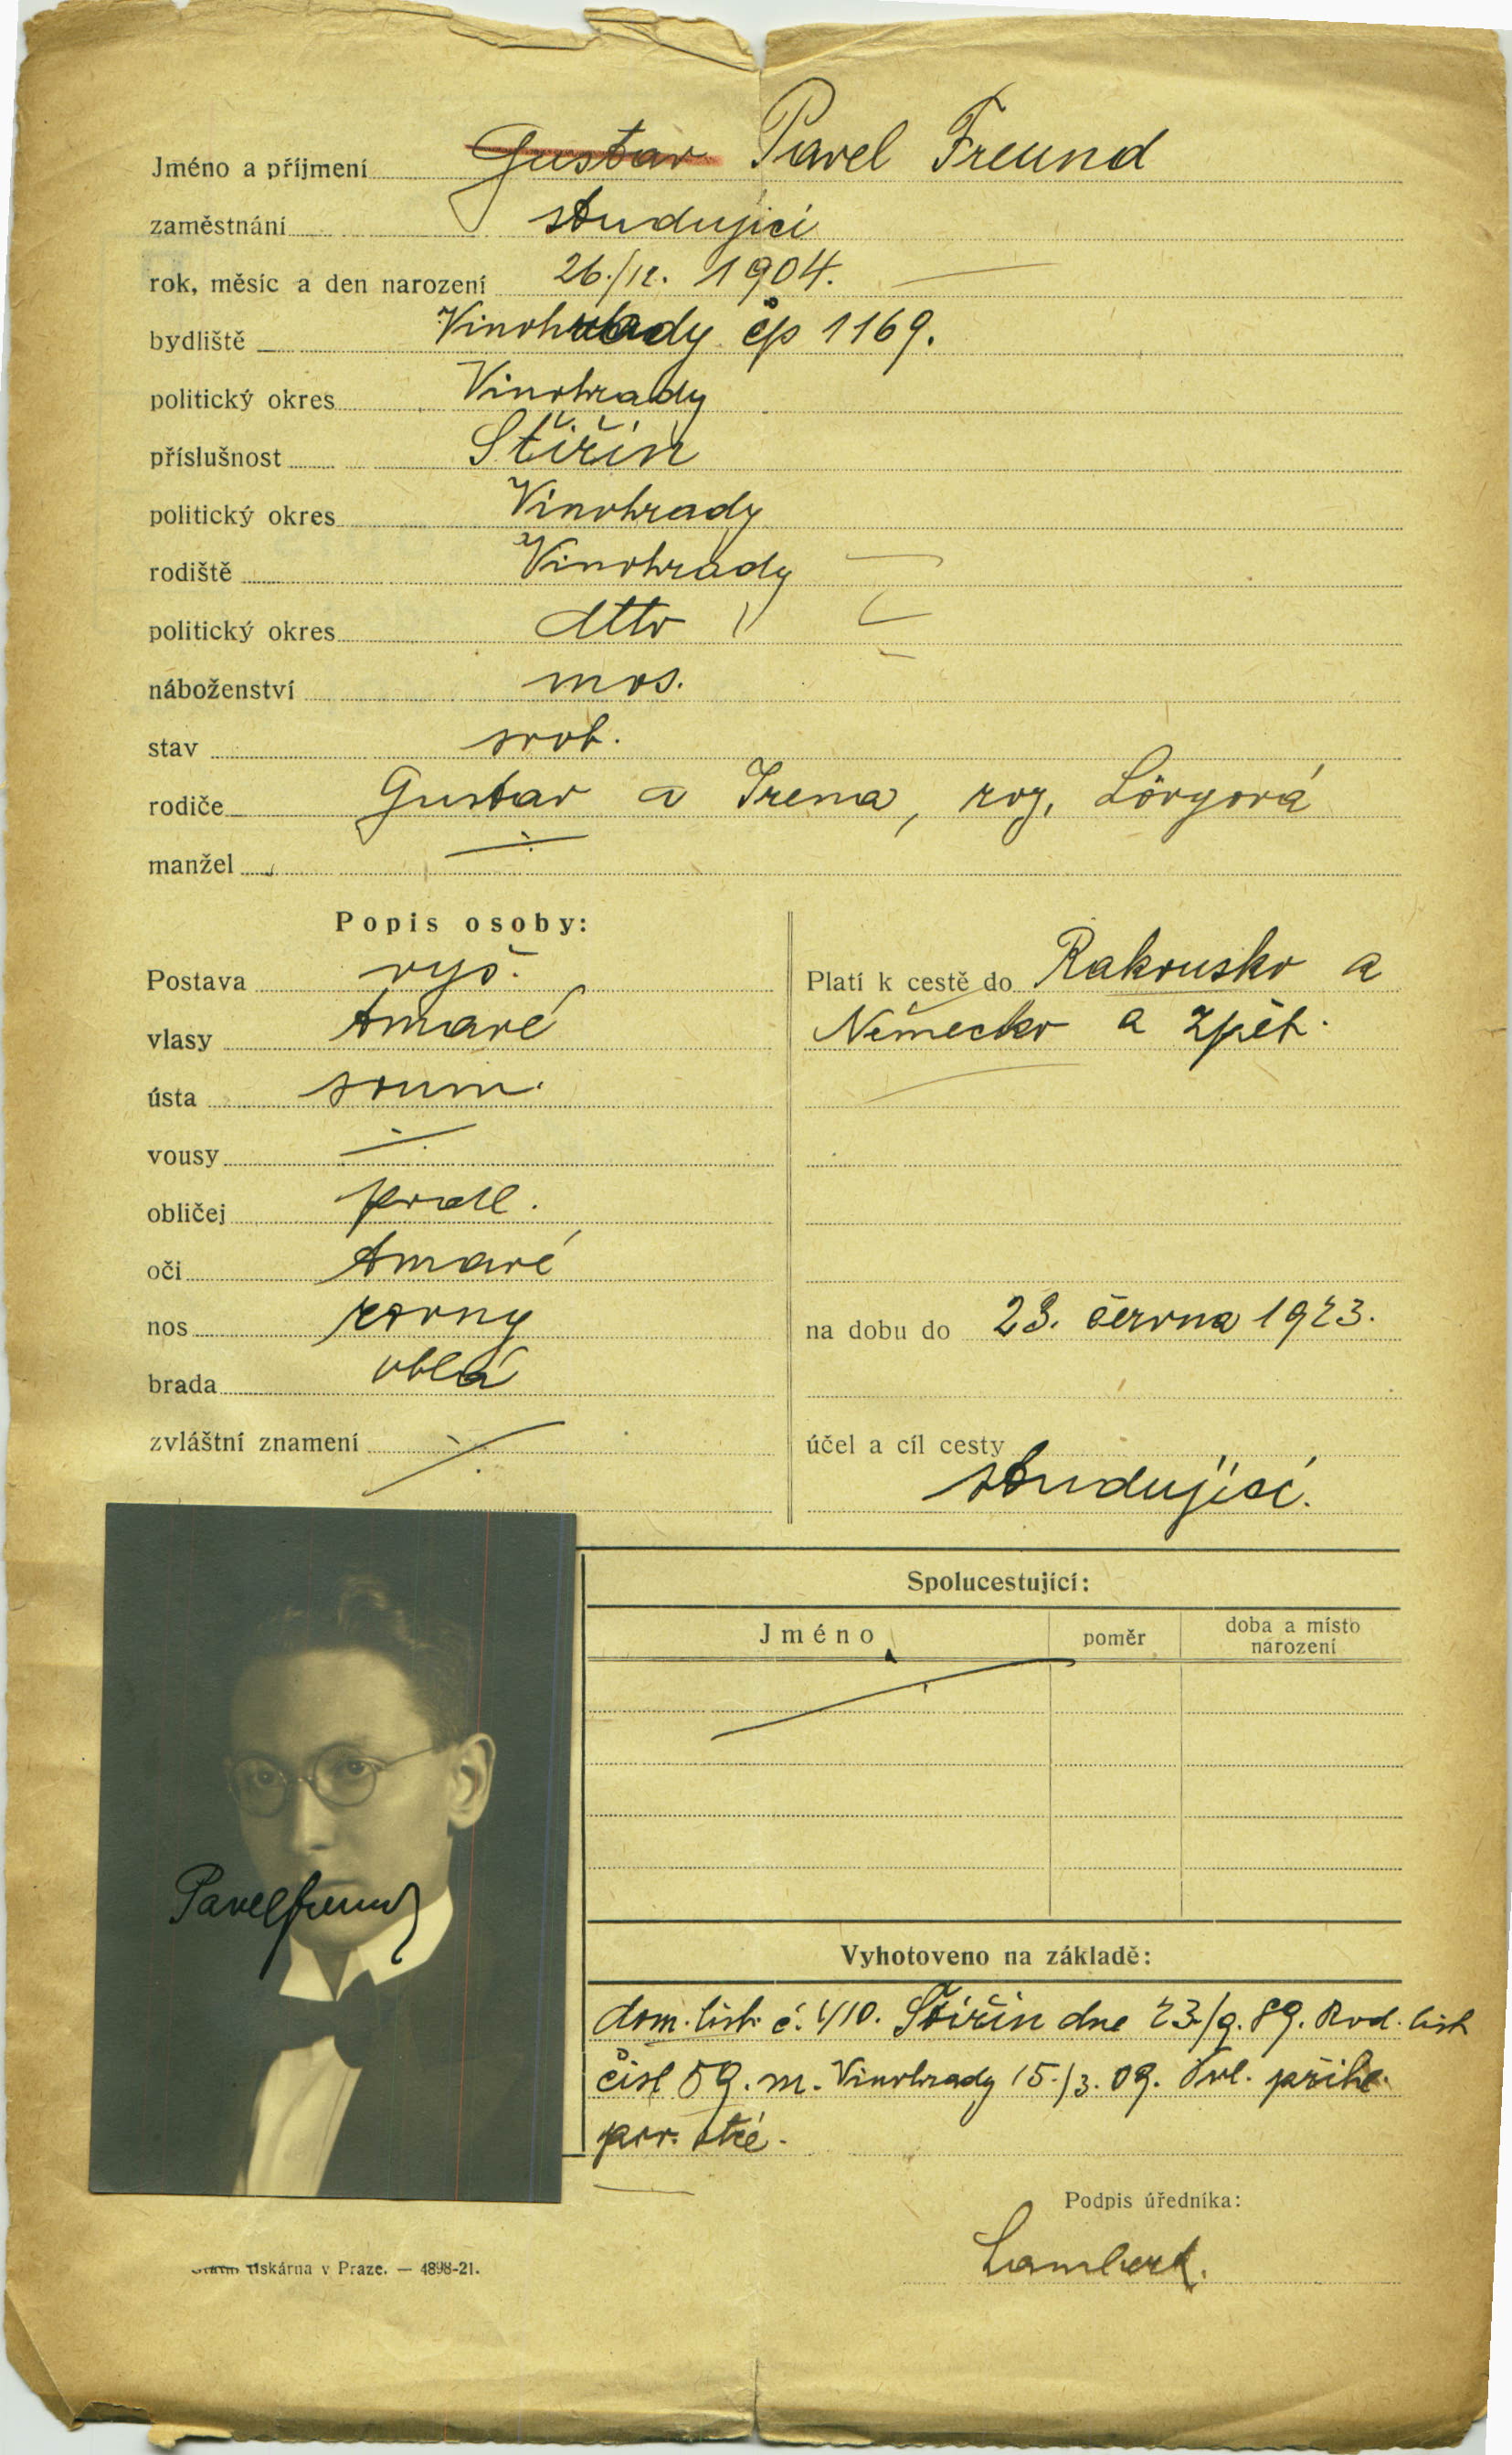 Jméno a příjmení Gustav Pavel Freund
zaměstnání studující
rok, měsíc a den narození 26./12. 1904.
bydliště Vinohrady čp 1169.
politický okres Vinohrady
příslušnost Štiřín
politický okres Vinohrady
rodiště Vinohrady
politický okres dtto
náboženství mos.
stav svob.
rodiče Gustav a Irena, roz.
manžel
Popis osoby:
Postava vyš.
vlasy tmavé
ústa soum.
vousy
obličej prodl.
oči tmavé
nos rovný
brada oblá
zvláštní znamení
Platí k cestě do Rakousko a
Německo a zpět.
na dobu do 23. června 1923.
účel a cíl cesty
studující.
Spolucestující:
Jméno poměr doba a místo
narození
Pavel Freund
Vyhotoveno na základě:
dom. list. č. 1/10. Štiřín dne 23/9. 89. Rod. list
čísl 59. m. Vinohrady 15./3. 09. přihl.
pov. otce.
Podpis úředníka:
Lambert.
Státní tiskárna v Praze. — 4898-21.